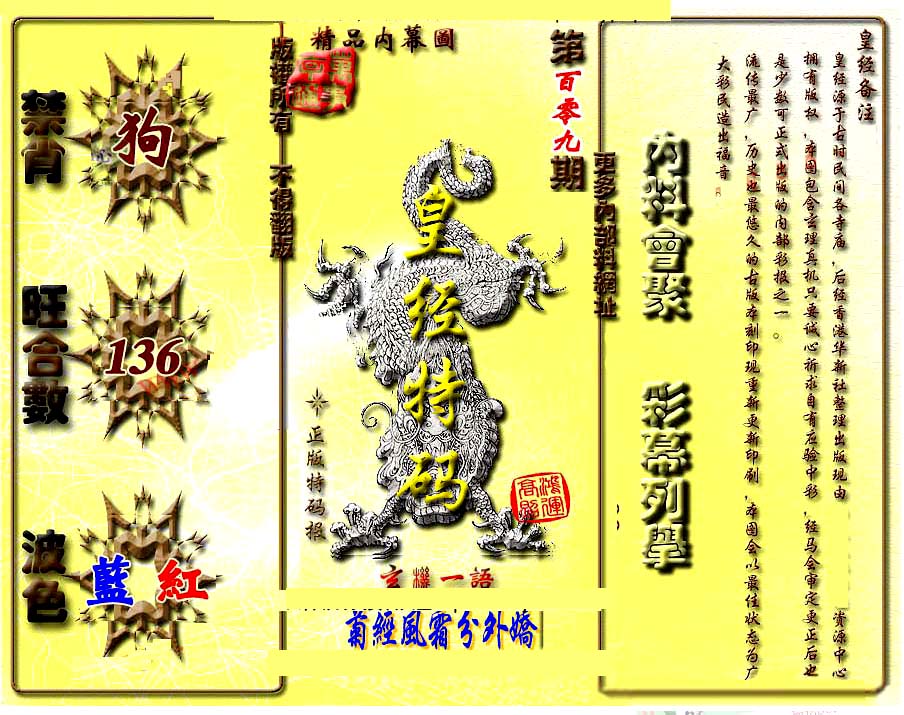 精品内幕圖
第
百零九
期
版權所有 不得翻版
更多內部料網址
禁肖
狗
旺合數
136
波色
藍 紅
皇经特码
正版特码报
鴻運
高照
玄機一語
菊經風霜分外嬌
內料會聚
彩幕列舉
皇经备注
皇经源于古时民间各寺庙，后经香港华新社整理出版现由 资源中心
拥有版权，本图包含玄理真机只要诚心祈求自有应验中彩，经马会审定更正后也
是少数可正式出版的内部彩报之一。
流传最广，历史也最悠久的古版本刻印现重新更新印刷，本图会以最佳状态为广
大彩民造出福音